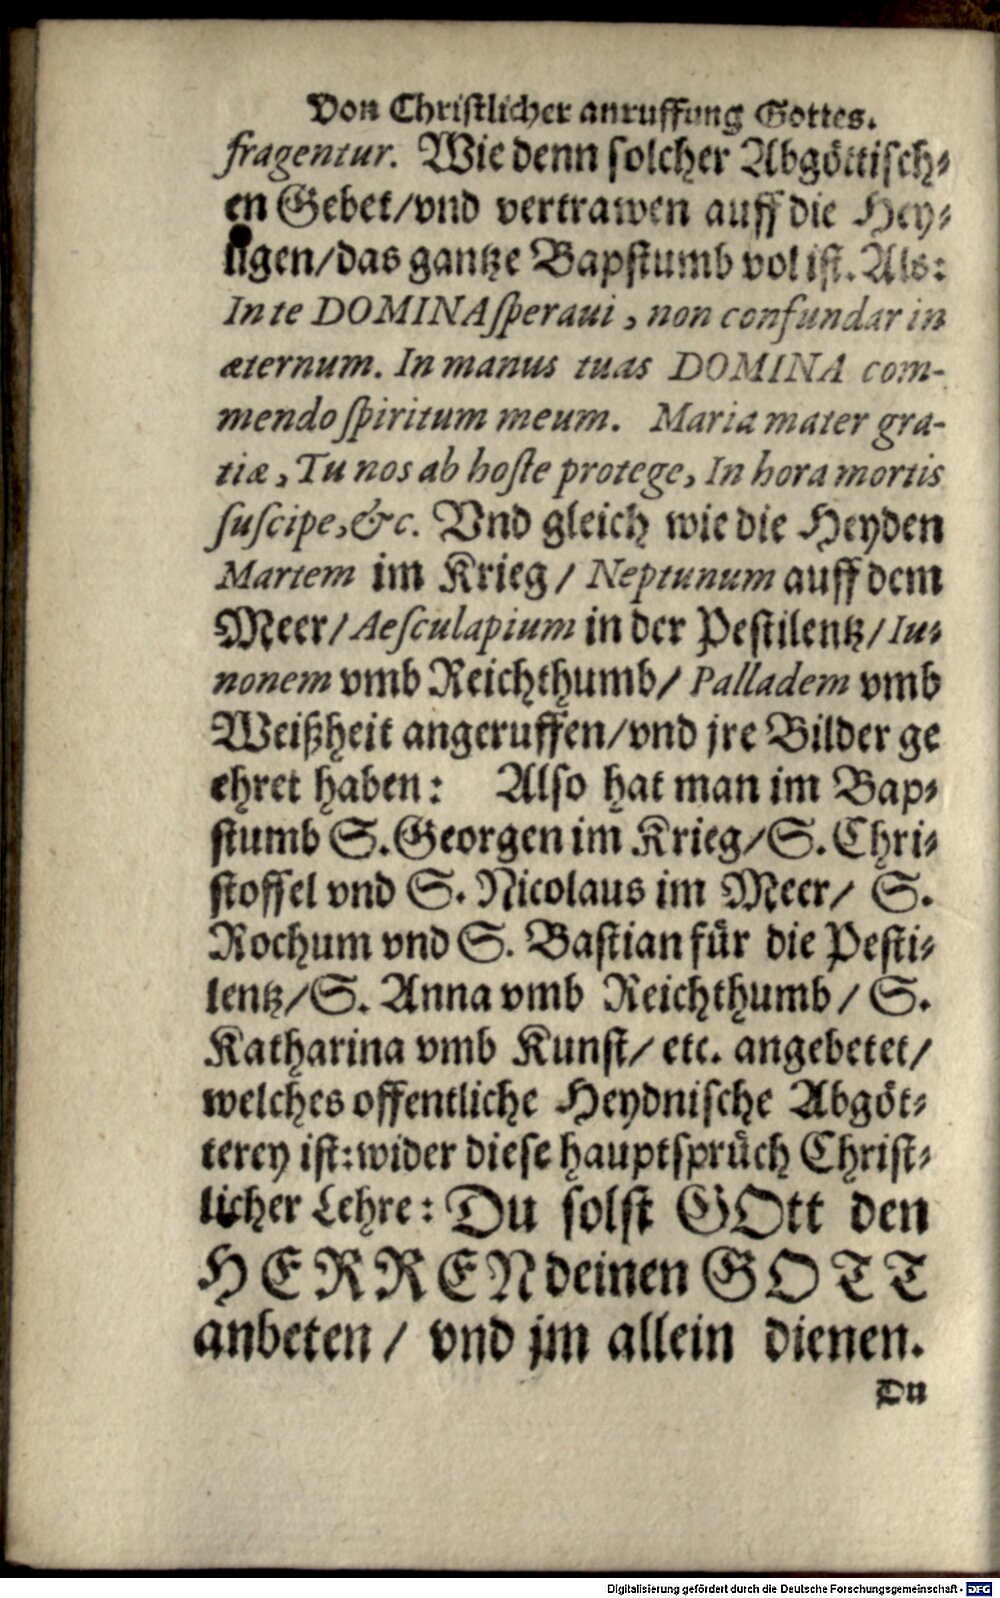 Von Christlicher anruffung Gottes.
fragentur. Wie denn solcher Abgöttisch⸗
en Gebet/vnd vertrawen auff die Hey⸗
ligen/das gantze Bapstumb vol ist. Als:
In te DOMINA ſperaui, non confundar in
æternum. In manus tuas DOMINA com-
mendo ſpiritum meum. Maria mater gra-
tiæ, Tu nos ab hoſte protege, In hora mortis
ſuſcipe, &c. Vnd gleich wie die Heyden
Martem im Krieg/ Neptunum auff dem
Meer/ Aeſculapium in der Pestilentz/ Iu⸗
nonem vmb Reichthumb/ Palladem vmb
Weißheit angeruffen/vnd jre Bilder ge
ehret haben: Also hat man im Bap⸗
stumb S. Georgen im Krieg/S. Chri⸗
stoffel vnd S. Nicolaus im Meer/ S.
Rochum vnd S. Bastian für die Pesti⸗
lentz/S. Anna vmb Reichthumb/ S.
Katharina vmb Kunst/ etc. angebetet/
welches offentliche Heydnische Abgöt⸗
terey ist: wider diese hauptsprüch Christ⸗
licher Lehre: Du solst GOtt den
HERREN deinen GOTT
anbeten/ vnd jm allein dienen.
Du
Digitalisierung gefördert durch die Deutsche Forschungsgemeinschaft - DFG